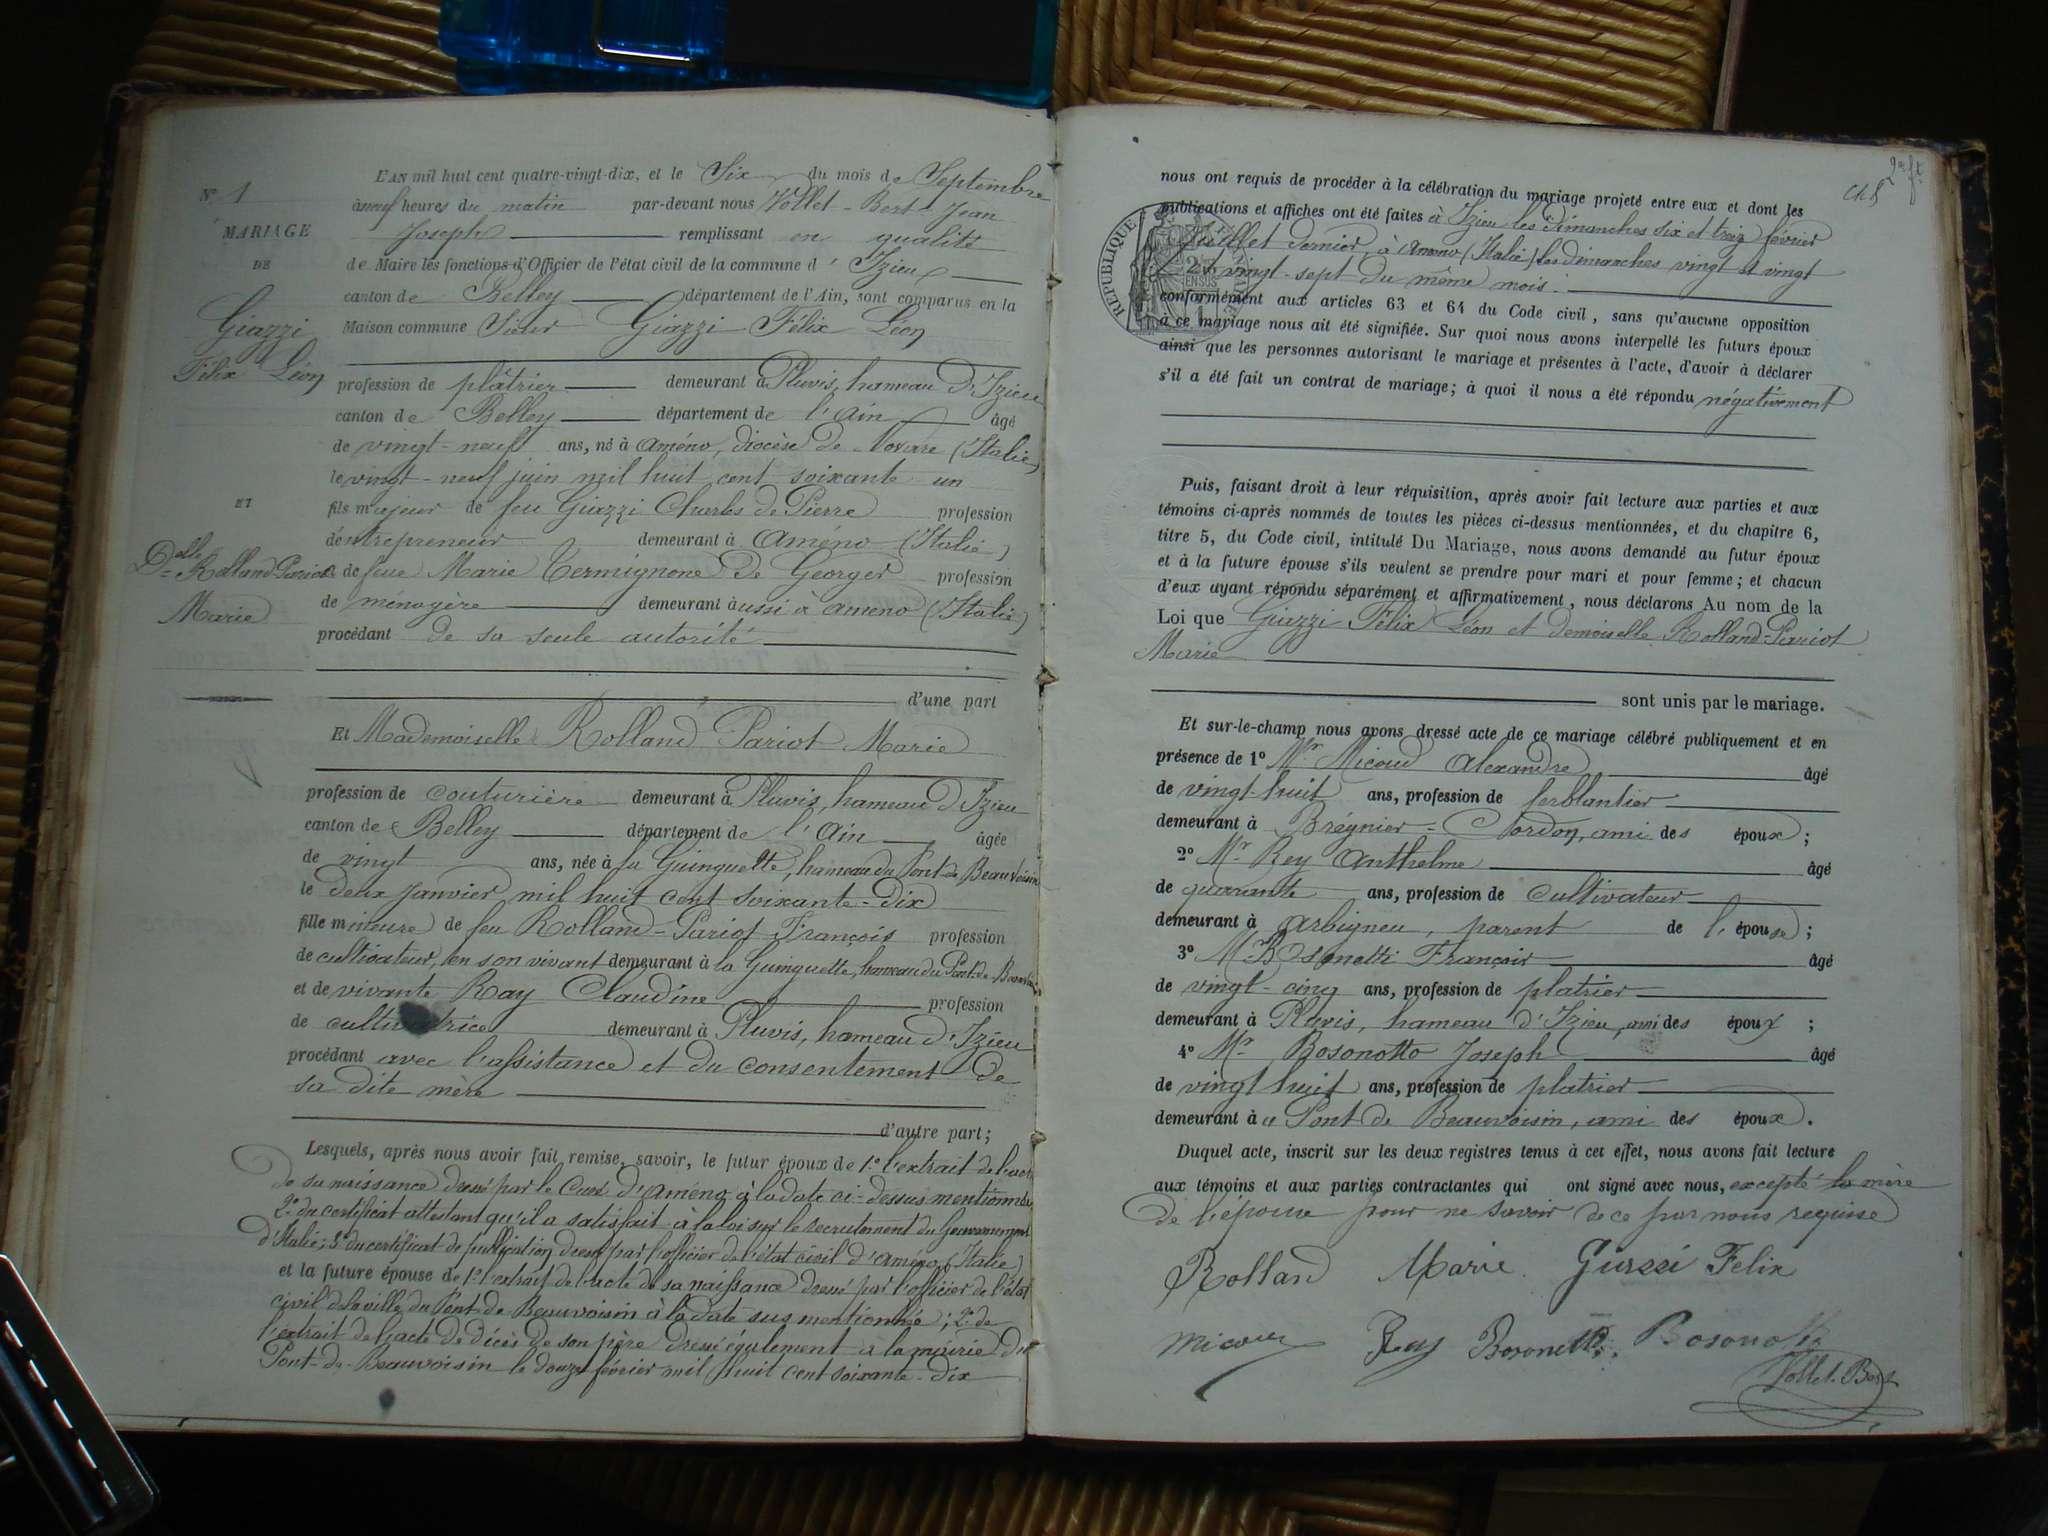 N° 1
MARIAGE
DE
Giazzi
Félix Léon
ET
Delle Rolland-Pariot
Marie
L'AN mil huit cent quatre-vingt-dix, et le Six du mois de Septembre
à neuf heures du matin par-devant nous Vollet-Bert Jean
Joseph remplissant en qualité
de Maire les fonctions d'Officier de l'état civil de la commune d'Izieu
canton de Belley département de l'Ain, sont comparus en la
Maison commune Sieur Giazzi Félix Léon
profession de plâtrier demeurant à Pluvis, hameau d'Izieu
canton de Belley département de l'Ain âgé
de vingt-neuf ans, né à Améno, diocèse de Novare (Italie)
le vingt-neuf juin mil huit cent soixante un
fils majeur de feu Giazzi Charles de Pierre profession
d'entrepreneur demeurant à Améno (Italie)
et de feue Marie Termignone de Georges profession
de ménagère demeurant aussi à Ameno (Italie)
procédant de sa seule autorité
d'une part
Et Mademoiselle Rolland Pariot Marie
profession de couturière demeurant à Pluvis, hameau d'Izieu
canton de Belley département de l'Ain âgée
de vingt ans, née à la Guinguette, hameau du Pont-de-Beauvoisin
le deux Janvier mil huit cent soixante-dix
fille mineure de feu Rolland-Pariot François profession
de cultivateur, en son vivant demeurant à la Guinguette, hameau du Pont-de-Beauvoisin
et de vivante Ray Claudine profession
de cultivatrice demeurant à Pluvis, hameau d'Izieu
procédant avec l'assistance et du consentement de
sa dite mère
d'autre part;
Lesquels, après nous avoir fait remise, savoir, le futur époux de 1° l'extrait de l'acte
de sa naissance dressé par le Curé d'Améno à la date ci-dessus mentionnée
2° du certificat attestant qu'il a satisfait à la loi sur le recrutement du Gouvernement
d'Italie; 3° du certificat de publication dressé par l'officier de l'état civil d'Améno (Italie)
et la future épouse de 1° l'extrait de l'acte de sa naissance dressé par l'officier de l'état
civil de la ville du Pont de Beauvoisin à la date sus mentionnée; 2° de
l'extrait de l'acte de décès de son père dressé également à la mairie du
Pont-de-Beauvoisin le douze février mil huit cent soixante-dix
nous ont requis de procéder à la célébration du mariage projeté entre eux et dont les
publications et affiches ont été faites à Izieu les dimanches six et treize février
Juillet dernier, à Ameno (Italie) les dimanches vingt et vingt
vingt-sept du même mois.
REPUBLIQUE
conformément aux articles 63 et 64 du Code civil, sans qu'aucune opposition
à ce mariage nous ait été signifiée. Sur quoi nous avons interpellé les futurs époux
ainsi que les personnes autorisant le mariage et présentes à l'acte, d'avoir à déclarer
s'il a été fait un contrat de mariage; à quoi il nous a été répondu négativement
Puis, faisant droit à leur réquisition, après avoir fait lecture aux parties et aux
témoins ci-après nommés de toutes les pièces ci-dessus mentionnées, et du chapitre 6,
titre 5, du Code civil, intitulé Du Mariage, nous avons demandé au futur époux
et à la future épouse s'ils veulent se prendre pour mari et pour femme; et chacun
d'eux ayant répondu séparément et affirmativement, nous déclarons Au nom de la
Loi que Giazzi Félix Léon et demoiselle Rolland-Pariot
Marie
sont unis par le mariage.
Et sur-le-champ nous avons dressé acte de ce mariage célébré publiquement et en
présence de 1° Mr Micoud Alexandre âgé
de vingt-huit ans, profession de ferblantier
demeurant à Brégnier-Cordon, ami des époux;
2° Mr Rey Anthelme âgé
de quarante ans, profession de cultivateur
demeurant à Arbignieu, parent de l'épouse;
3° Mr Bosonetti François âgé
de vingt-cinq ans, profession de platrier
demeurant à Pluvis, hameau d'Izieu, ami des époux;
4° Mr Bosonotto Joseph âgé
de vingt huit ans, profession de platrier
demeurant à Pont de Beauvoisin, ami des époux.
Duquel acte, inscrit sur les deux registres tenus à cet effet, nous avons fait lecture
aux témoins et aux parties contractantes qui ont signé avec nous, excepté la mère
de l'épouse pour ne savoir de ce par nous requise
Rolland Marie Giazzi Felix
Micoud Rey Bosonetti Bosonotto
Vollet-Bert